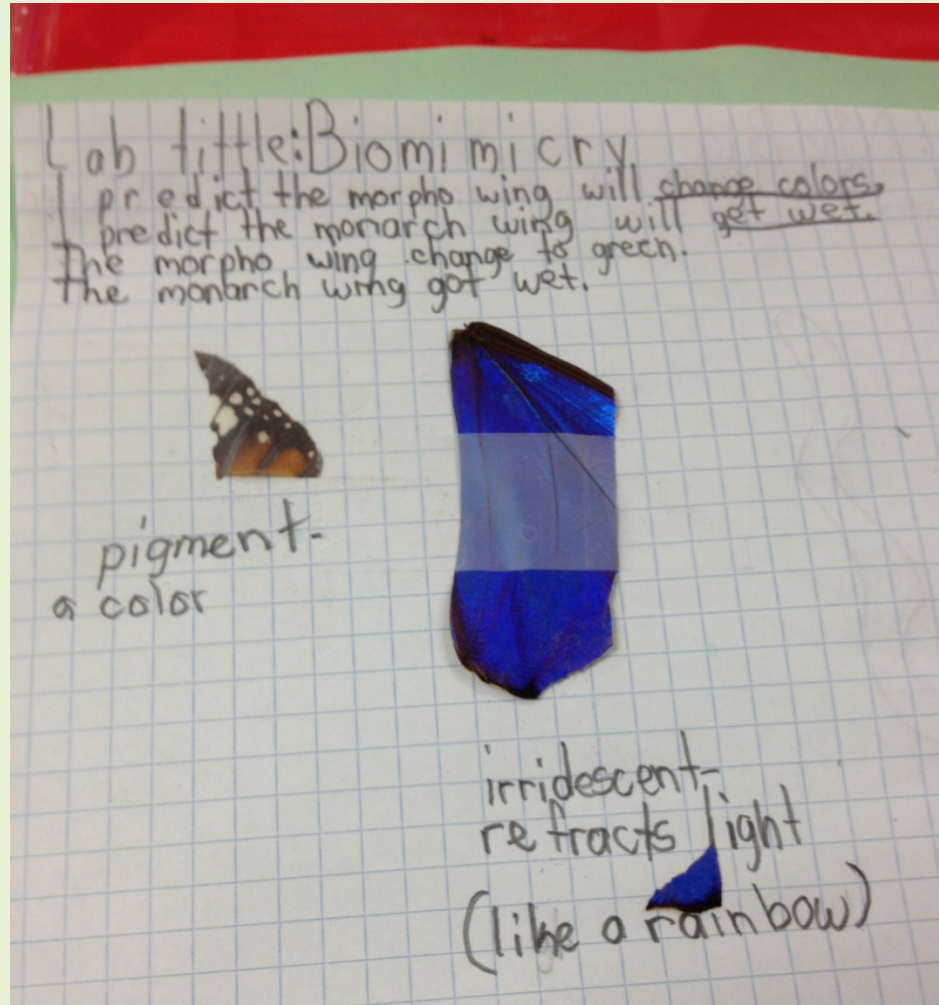 Lab tittle: Biomimicry.
I predict the morpho wing will change colors.
I predict the monarch wing will get wet.
The morpho wing change to green.
The monarch wing got wet.
pigment-
a color
irridescent-
refracts light
(like a rainbow)